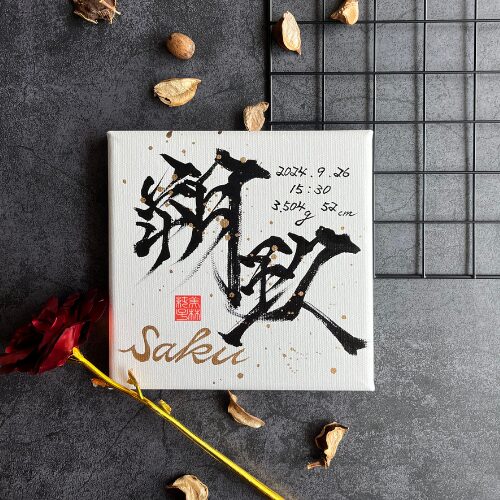 朔玖
2024.9.26
15:30
3,504g 52cm
Saku